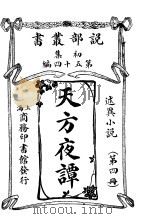 說部叢書
初集
第五十四編
述異小說
(第四冊)
天方夜譚
商務印書館發行